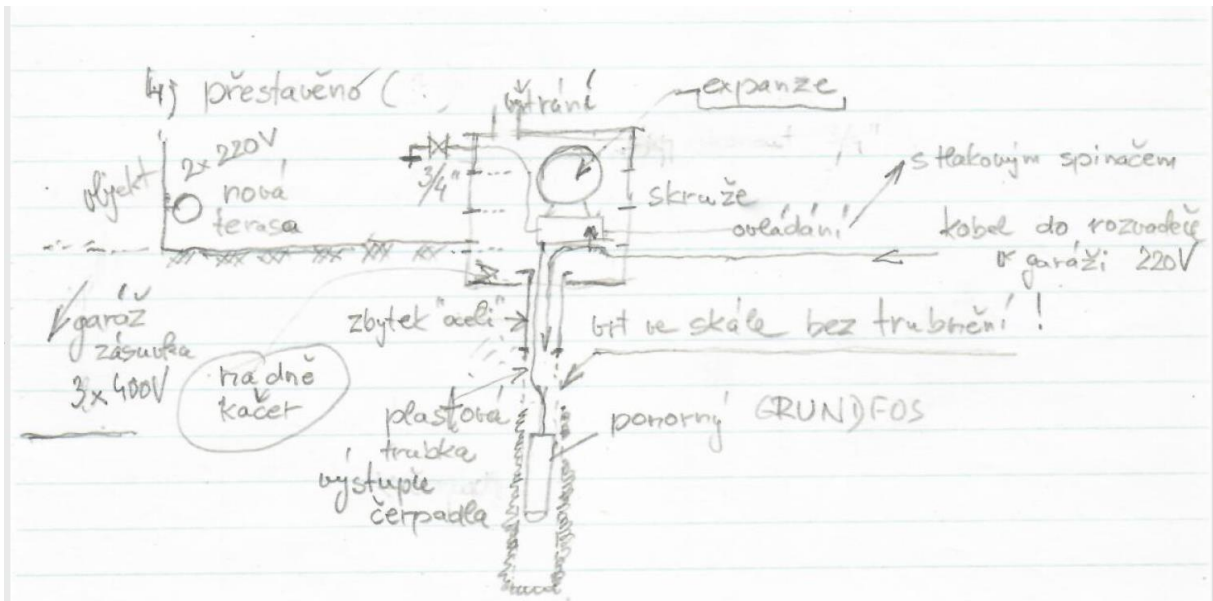 4) přestavěno (
větrání
expanze
objekt
2x 220V
nová
terasa
3/4"
skruže
s tlakovým spínačem
ovládání
kabel do rozvaděče
v garáži 220V
garáž
zásuvka
3x 400V
na dně
kačer
zbytek "oceli"
vrt ve skále bez trubnění!
plastová
trubka
výstupu
čerpadla
ponorný GRUNDFOS